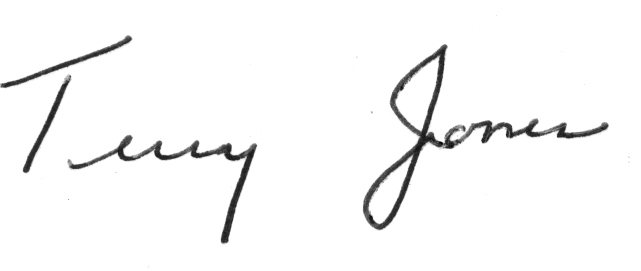 Terry Jones